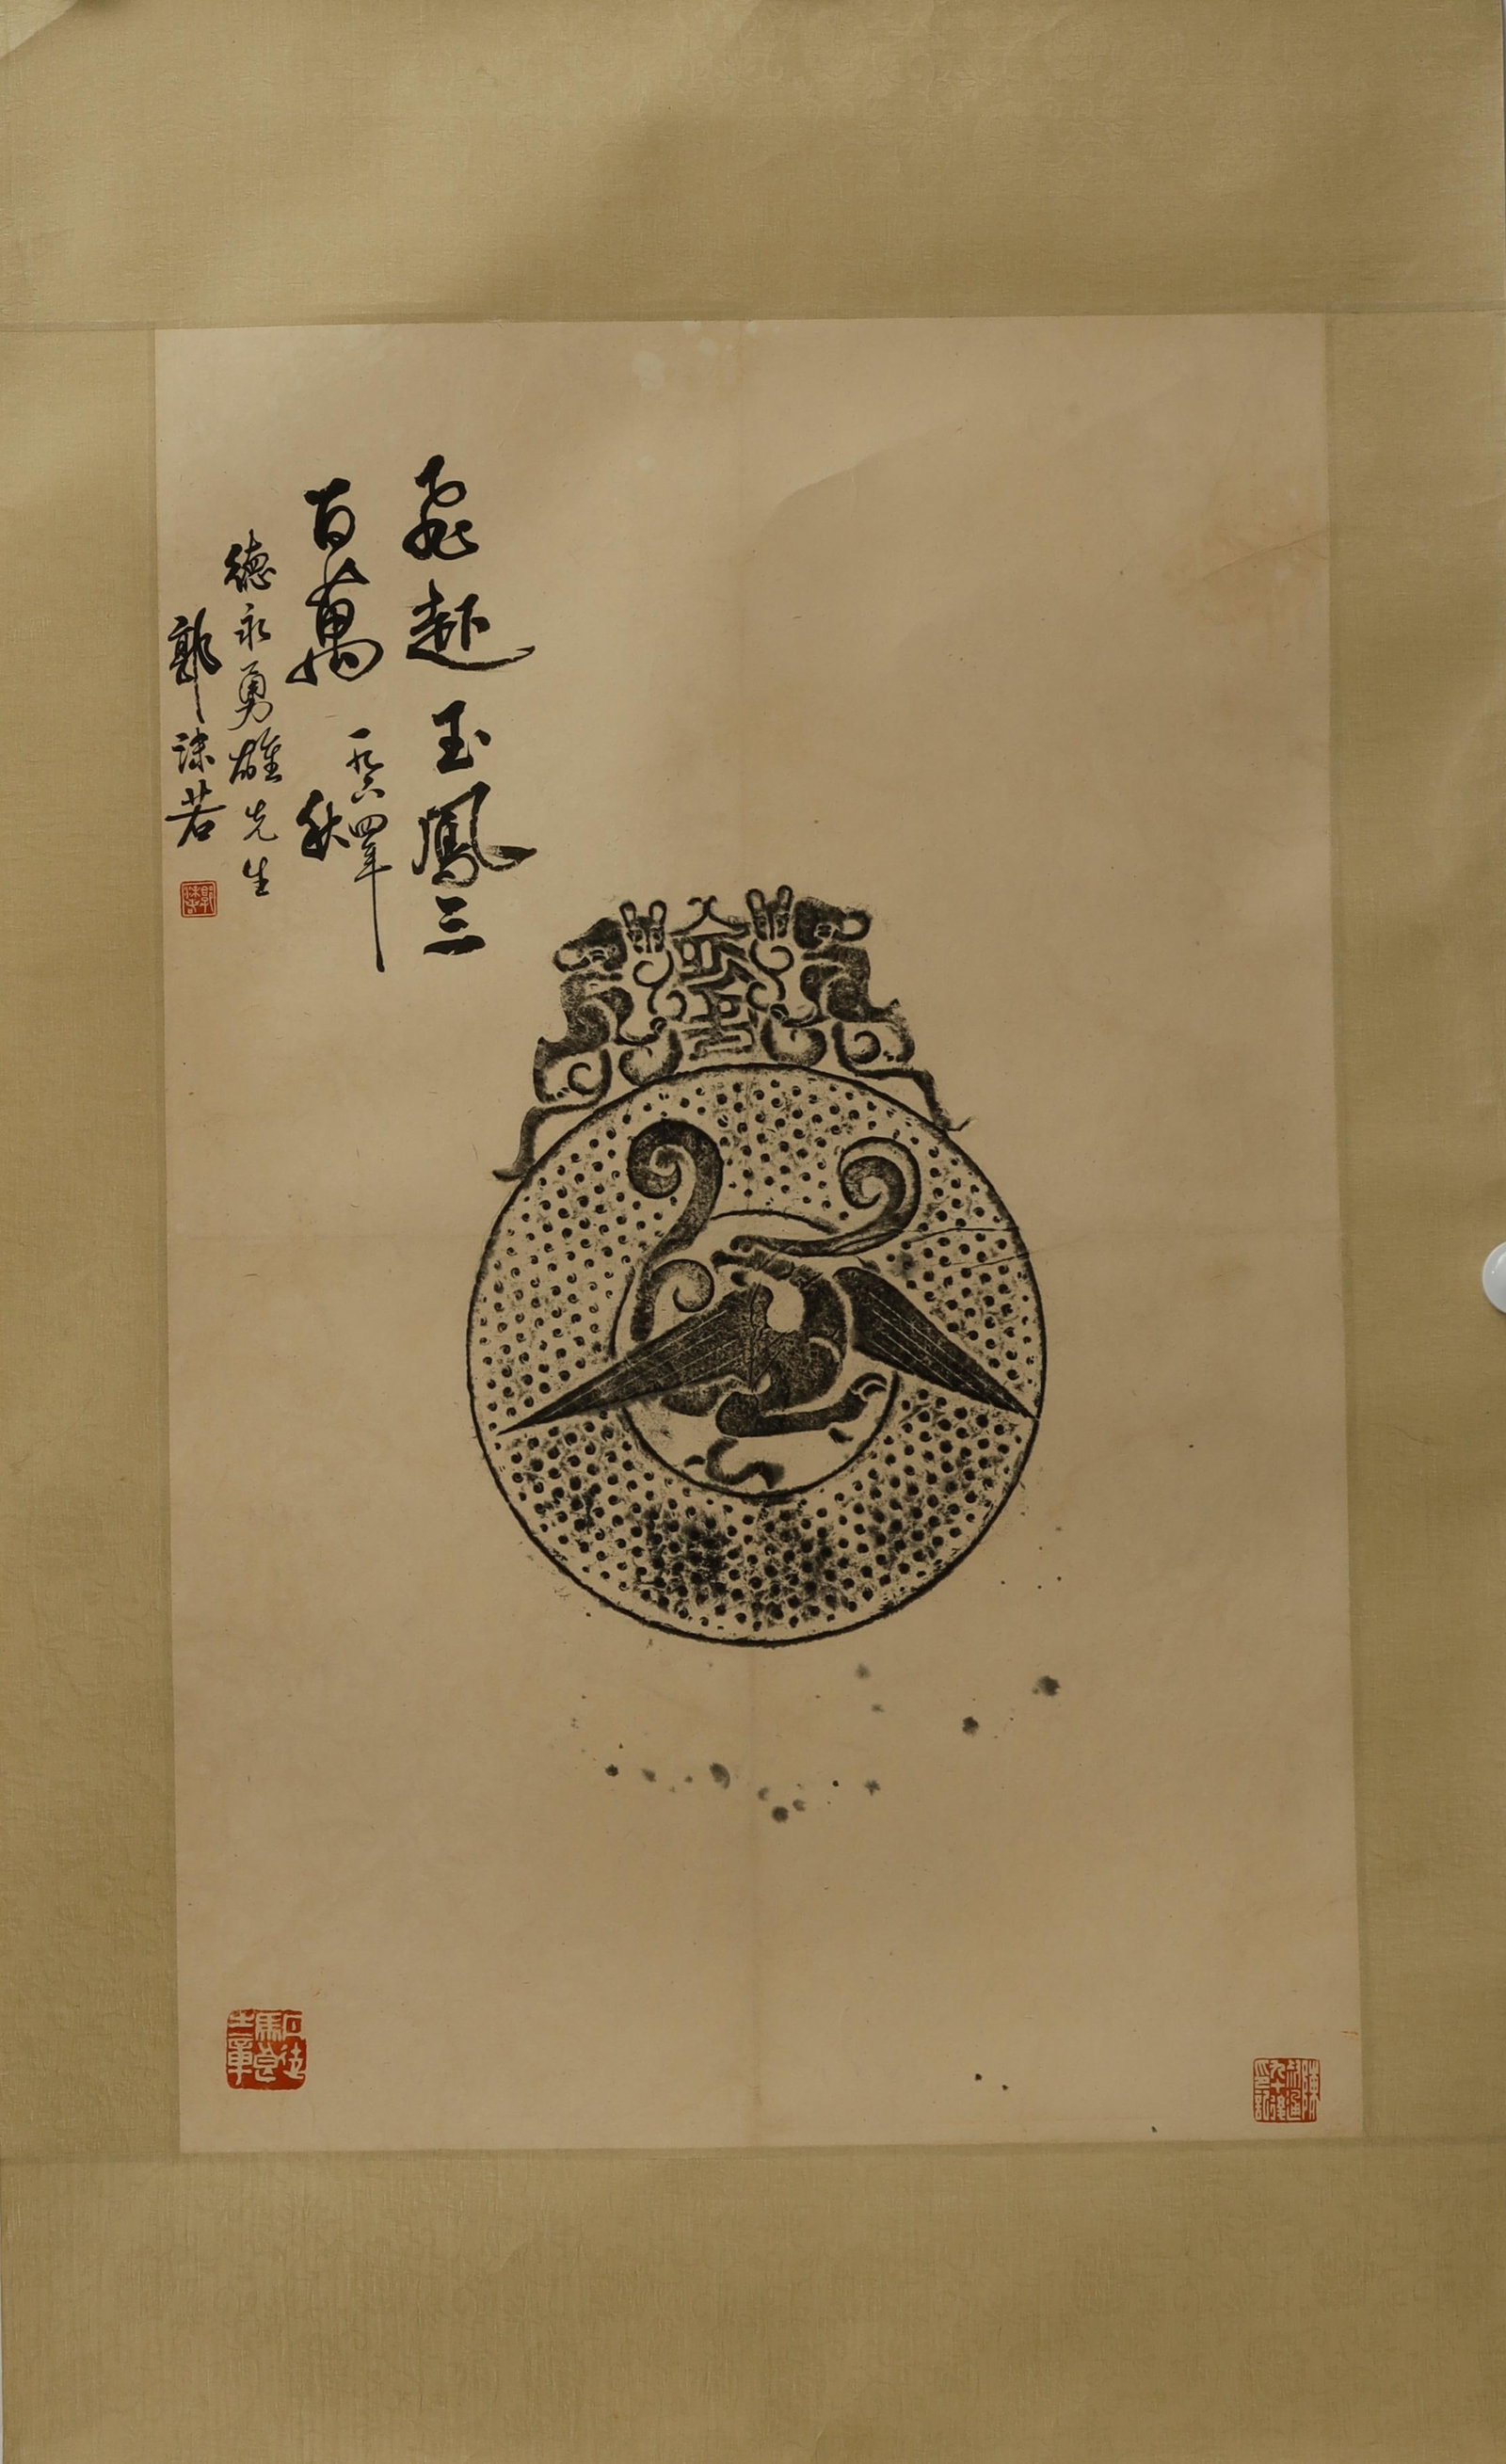 飛起玉鳳三
百萬
一九六四年
秋
德永勇雄先生
郭沫若
郭沫若